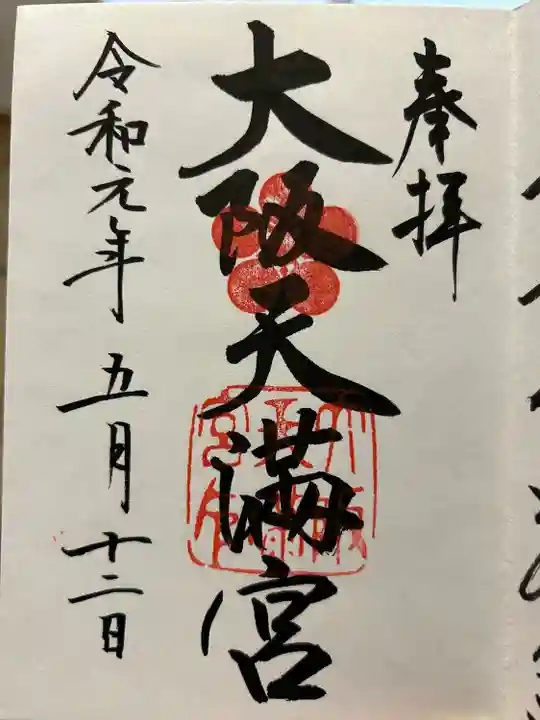 奉拝
大阪天満宮
令和元年 五月十二日